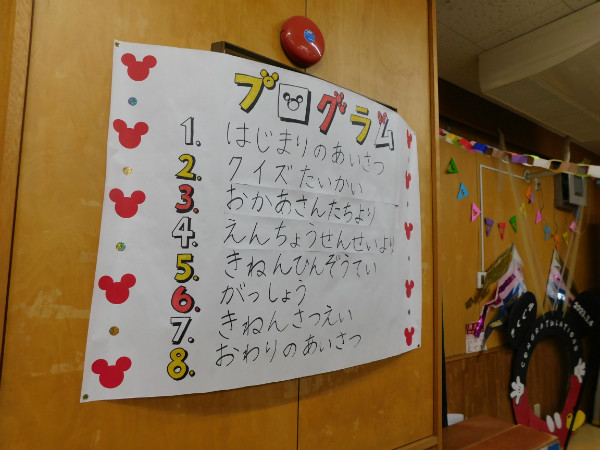 プログラム
1. はじまりのあいさつ
2. クイズたいかい
3. おかあさんたちより
4. えんちょうせんせいより
5. きねんひんぞうてい
6. がっしょう
7. きねんさつえい
8. おわりのあいさつ
CONGRATULATIONS